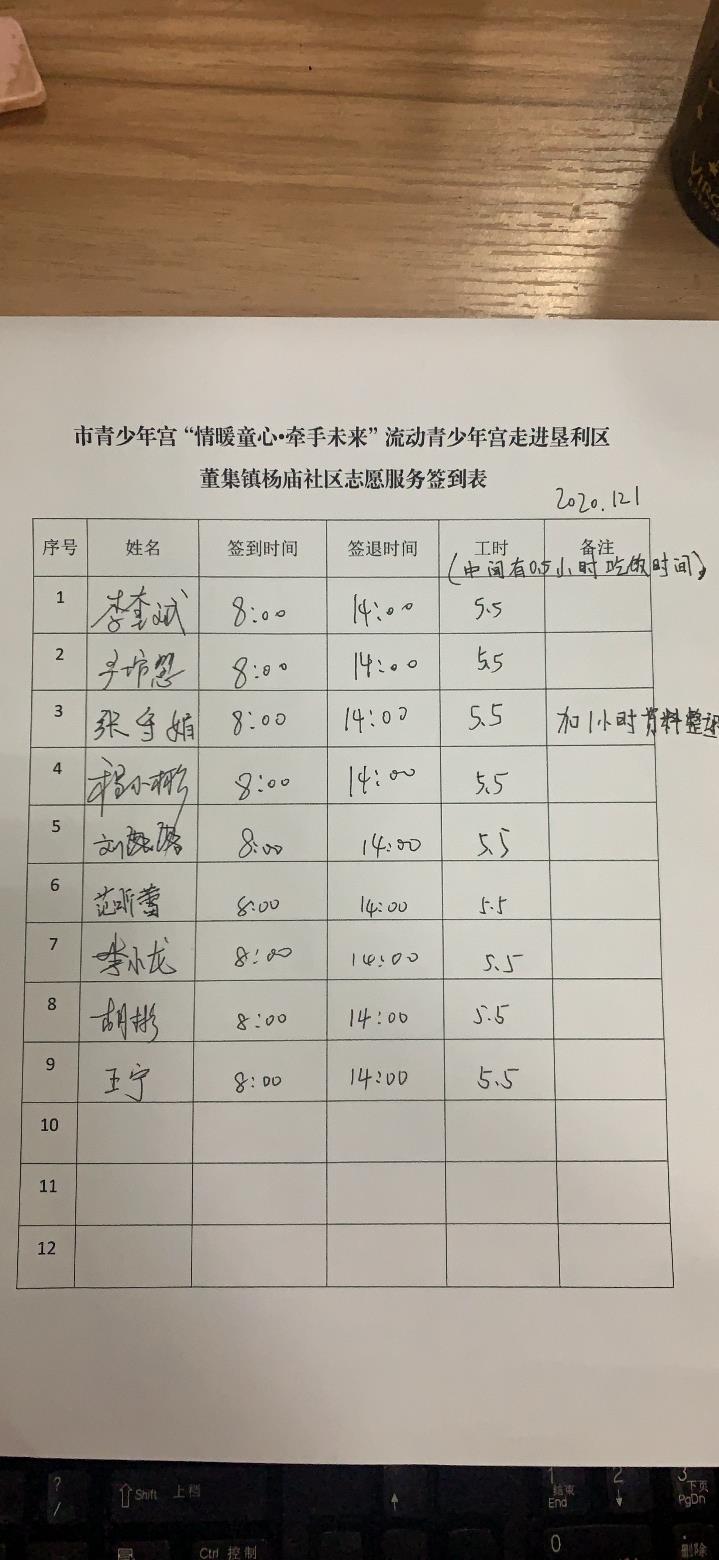 市青少年宫“情暖童心•牵手未来”流动青少年宫走进垦利区
董集镇杨庙社区志愿服务签到表
2020.121
序号 姓名 签到时间 签退时间 工时 备注
(中间有0.5小时吃饭时间)
1 李奎斌 8:00 14:00 5.5
2 8:00 14:00 5.5
3 张守娟 8:00 14:00 5.5 加1小时资料整理
4 杨小彬 8:00 14:00 5.5
5 刘 8:00 14:00 5.5
6 范昕蕾 8:00 14:00 5.5
7 李小龙 8:00 14:00 5.5
8 胡彬 8:00 14:00 5.5
9 王宁 8:00 14:00 5.5
10
11
12
? 1 2 3
/ Shift 上档 结束 End 下页 PgDn
Ctrl 控制 0 删除